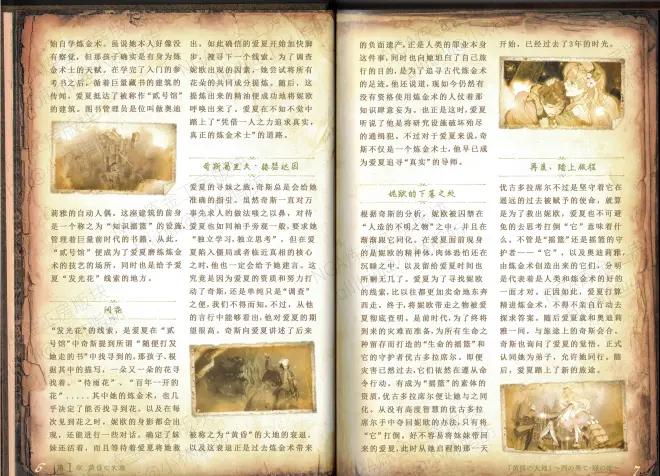 始自学炼金术。虽说她本人好像没
有察觉，但那孩子确实是有身为炼
金术士的天赋。在学完了入门的参
考书之后，循着巨量藏书的建筑的
传闻，爱夏抵达了被称作“贰号馆”
的建筑。图书管理员是位叫做奥迪
莉雅的自动人偶，这座建筑的前身
是一个称之为“知识摇篮”的设施，
管理着巨量前时代的书籍。从此，
“贰号馆”便成为了爱夏磨练炼金
术的技艺的场所，同时也是给予爱
夏“发光花”线索的地方。
问花
“发光花”的线索，是爱夏在“贰
号馆”中奇斯提到所谓“随便打发
她走的书”中找到的。那孩子，根
据其中的描写，一朵又一朵的花寻
找着。“待雨花”、“百年一开的
花”……其中她的炼金术，也几
乎决定了能否找寻到花。以及在每
次见到花之时，妮欧的身影都会出
现，还能进行一些对话。确定了妹
妹还活着，而且等待着爱夏将她救
出。如此确信的爱夏开始加快脚
步，搜寻下一个线索。为了调查
妮欧出现的因素，她尝试将所有
花朵的共同成分提炼。随后，这
提炼出来的精油便成功地将妮欧
呼唤出来了。爱夏在不知不觉中
踏上了“凭借一人之力追求真实，
真正的炼金术士”的道路。
奇斯葛里夫·海瑟达因
爱夏的寻妹之旅，奇斯总是会给她
准确的指引。虽然奇斯一直对万
事先求人的做法嗤之以鼻，对待
爱夏也如同袖手旁观一般，要求她
“独立学习，独立思考”。但在爱
夏陷入僵局或者临近真相的核心
之时，他也一定会给予她建言。这
究竟是因为爱夏的资质和努力打
动了奇斯，还是单纯只是“调查”
之便，我们不得而知。不过，从他
的言行中能够看出，他对爱夏的期
望很高。奇斯向爱夏讲述了后来
被称为“黄昏”的大地的衰退，
以及这衰退正是过去炼金术带来
6
第1章 黄昏の大地
的负面遗产，正是人类的罪业本身
这件事，同时也向她坦白了自己旅
行的目的，是为了追寻古代炼金术
的足迹。他还说道，现如今仍然有
没有资格使用炼金术的人仗着那
知识肆意妄为。也正是这时，爱夏
听说了他是将研究设施破坏殆尽
的通缉犯。不过对于爱夏来说，奇
斯不仅是一个炼金术士，他早已成
为了爱夏追寻“真实”的导师。
妮欧的下落之处
根据奇斯的分析，妮欧被囚禁在
“人造的不明之物”之中，并且在
渐渐跟它同化。在爱夏面前现身
的是妮欧的精神体，肉体恐怕还在
沉睡之中。以及留给爱夏时间也
所剩无几了。爱夏为了寻找妮欧
的线索，比以往都更加卖命地东奔
西走。终于，将妮欧带走之物被爱
夏彻底查明。是前时代，为了终将
到来的灾难而准备，为所有生命之
种留存而打造的“生命的摇篮”和
它的守护者优古多拉席尔。即便
灾害已然过去，它们依然在遵从命
令行动。有成为“摇篮”的素体的
资质，优古多拉席尔便让她与之同
化。从没有高度智慧的优古多拉
席尔手中夺回妮欧的办法，只有将
“它”打倒。好不容易将妹妹带回
来的爱夏，此时从她启程的那一天
开始，已经过去了3年的时光。
再度，踏上旅程
优古多拉席尔不过是坚守着它在
遥远的过去被赋予的使命，就算
是为了救出妮欧，爱夏也不可避
免的去思考打倒“它”意味着什
么。不管是“摇篮”还是摇篮的守
护者——“它”，以及奥迪莉雅，
由炼金术创造出来的它们，分明
是代表着是人类和炼金术的好的
一面才对。正因如此，爱夏打算
精进炼金术，不得不亲自动去
探求答案。随后爱夏就和奥迪莉
雅一同，与旅途上的奇斯会合。
奇斯也询问了爱夏的觉悟，正式
认同她为弟子，允许她同行。随
后，爱夏踏上了新的旅途。
7